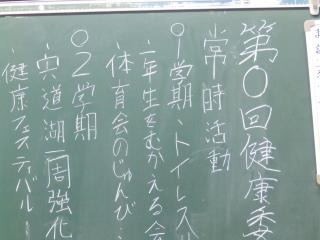 第0回健康委
常時活動
○1学期・トイレ
・一年生をむかえる会
・体育会のじゅんび
○2学期
・宍道湖一周強化
・健康フェスティバル